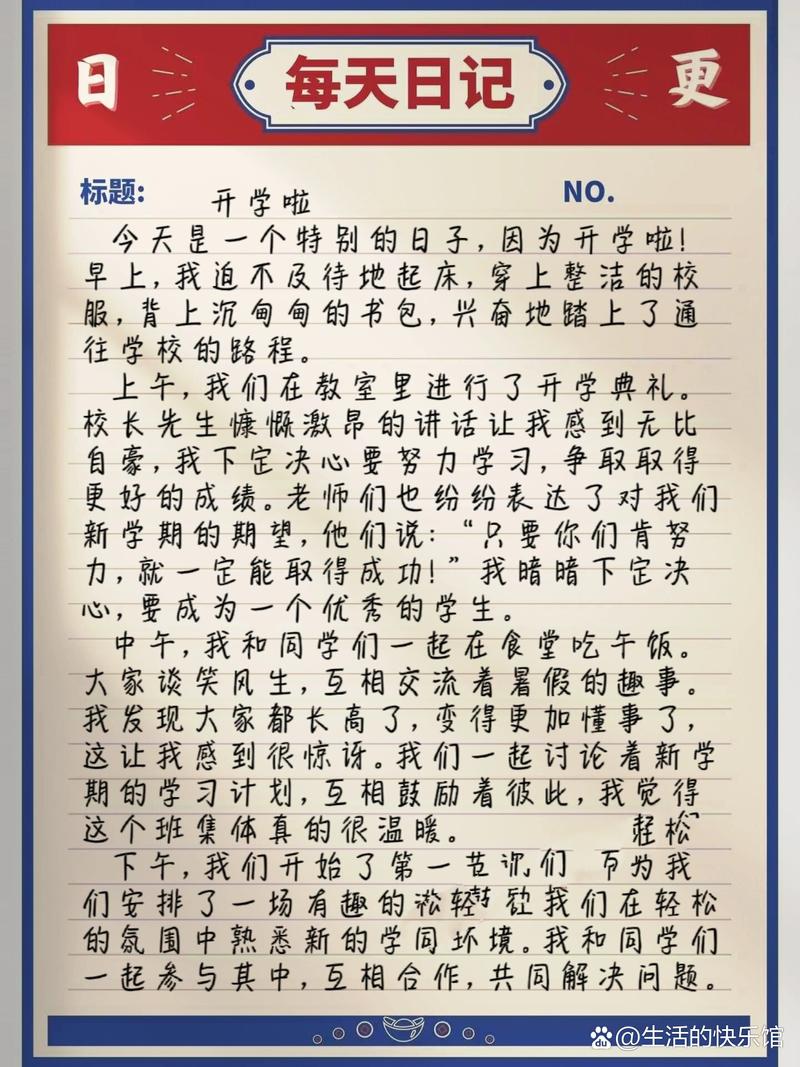 日 每天日记 更
标题: 开学啦 NO.
今天是一个特别的日子,因为开学啦!
早上,我迫不及待地起床,穿上整洁的校
服,背上沉甸甸的书包,兴奋地踏上了通
往学校的路程。
上午,我们在教室里进行了开学典礼。
校长先生慷慨激昂的讲话让我感到无比
自豪,我下定决心要努力学习,争取取得
更好的成绩。老师们也纷纷表达了对我们
新学期的期望,他们说:“只要你们肯努
力,就一定能取得成功!”我暗暗下定决
心,要成为一个优秀的学生。
中午,我和同学们一起在食堂吃午饭。
大家谈笑风生,互相交流着暑假的趣事。
我发现大家都长高了,变得更加懂事了,
这让我感到很惊讶。我们一起讨论着新学
期的学习计划,互相鼓励着彼此,我觉得
这个班集体真的很温暖。 轻松
下午,我们开始了第一节 们 为我
们安排了一场有趣的 我们在轻松
的氛围中熟悉新的学同环境。我和同学们
一起参与其中,互相合作,共同解决问题。
Baidu @生活的快乐馆